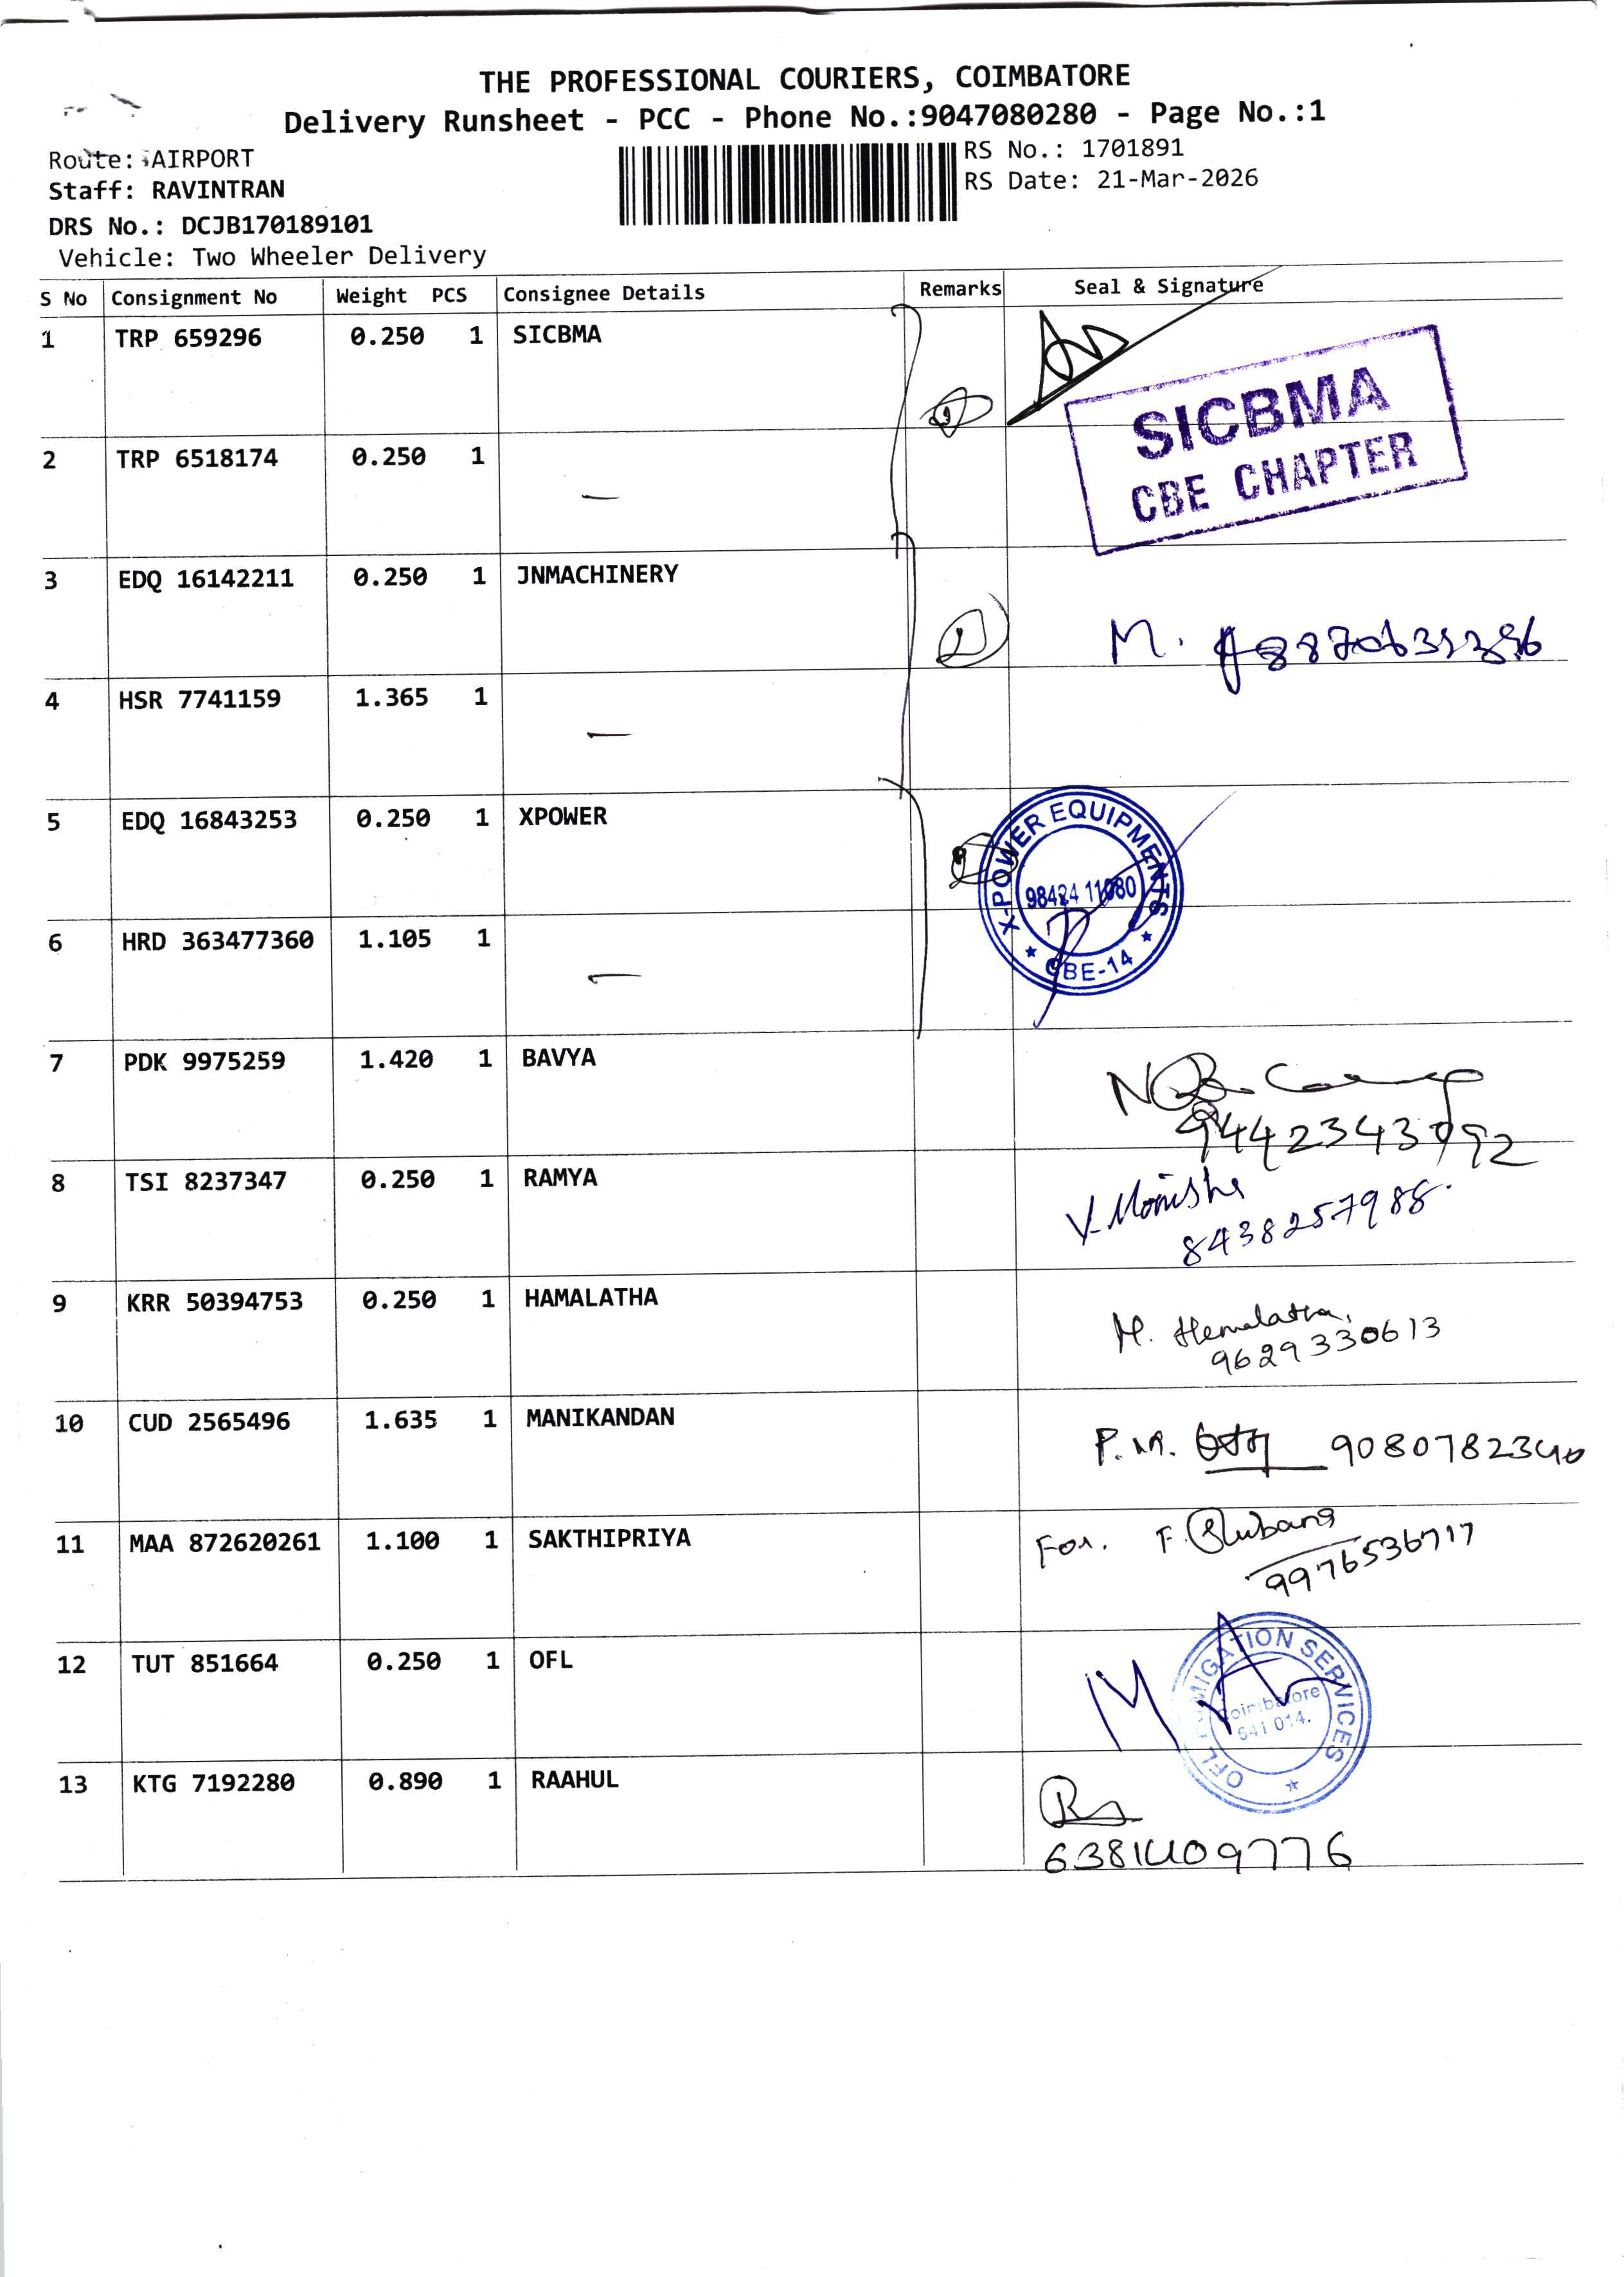 THE PROFESSIONAL COURIERS, COIMBATORE
Delivery Runsheet - PCC - Phone No.:9047080280 - Page No.:1
Route: AIRPORT
RS No.: 1701891
Staff: RAVINTRAN
RS Date: 21-Mar-2026
DRS No.: DCJB170189101
Vehicle: Two Wheeler Delivery
S No Consignment No Weight PCS Consignee Details Remarks Seal & Signature
1 TRP 659296 0.250 1 SICBMA
SICBMA
CBE CHAPTER
2 TRP 6518174 0.250 1
3 EDQ 16142211 0.250 1 JNMACHINERY
M.
4 HSR 7741159 1.365 1
5 EDQ 16843253 0.250 1 XPOWER
X-POWER EQUIPMENTS
98424 11080
CBE-14
6 HRD 363477360 1.105 1
7 PDK 9975259 1.420 1 BAVYA
9442343092
8 TSI 8237347 0.250 1 RAMYA
V. Monisha
8438257988.
9 KRR 50394753 0.250 1 HAMALATHA
M. Hemalatha,
9629330613
10 CUD 2565496 1.635 1 MANIKANDAN
P. M. 9080782340
11 MAA 872620261 1.100 1 SAKTHIPRIYA
For. F.
9976536717
12 TUT 851664 0.250 1 OFL
OFL FUMIGATION SERVICES
Coimbatore
641 014.
13 KTG 7192280 0.890 1 RAAHUL
6381409776